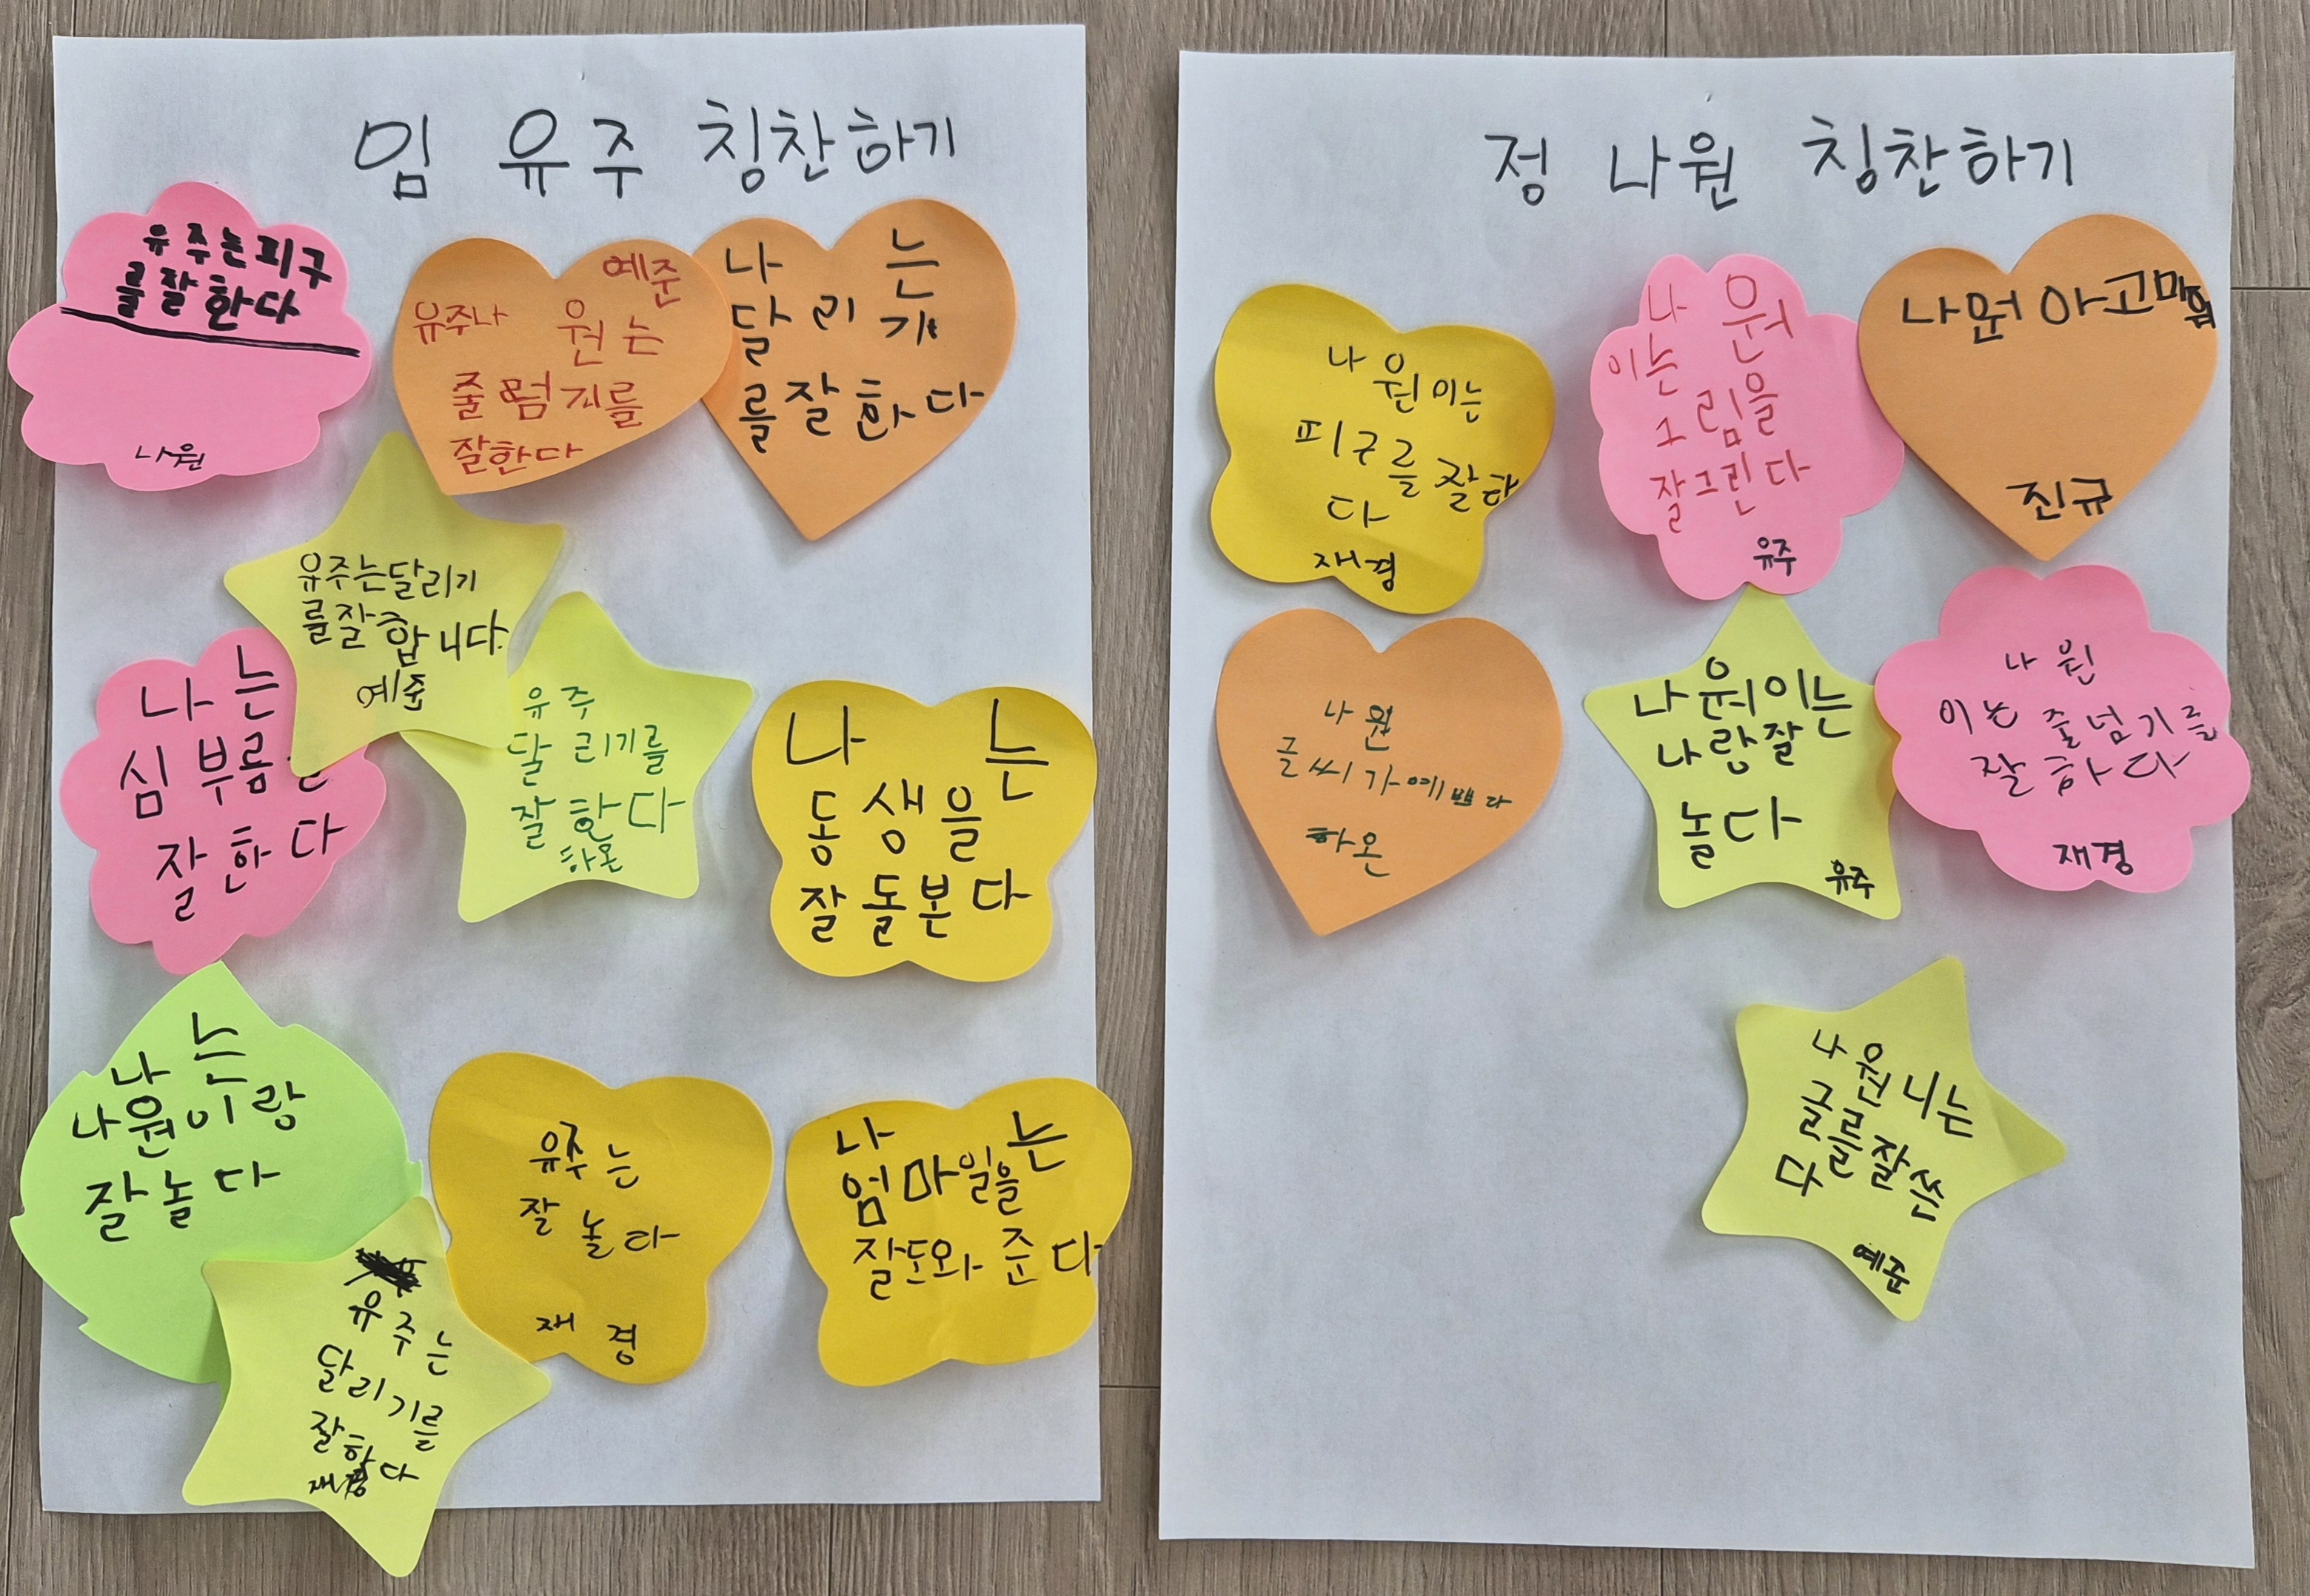 임 유주 칭찬하기
유주는피구
를잘한다
나원
예준
유주나 원는
줄넘기를
잘한다
나 는
달리기
를잘한다
유주는달리기
를잘합니다.
예준
나는
심부름을
잘한다
유주
달리기를
잘한다
하온
나 는
동생을
잘돌본다
나 는
나원이랑
잘놀다
유주는
잘 놀다
재경
나 는
엄마일을
잘도와준다
유주는
달리기를
잘한다
재경
정 나원 칭찬하기
나원이는
피구를잘하
다
재경
나원
이는
그림을
잘그린다
유주
나원아고마워
진규
나원
글씨가예쁘다
하온
나원이는
나랑잘
놀다
유주
나원
이는줄넘기를
잘하다
재경
나원니는
글를잘쓴
다
예준